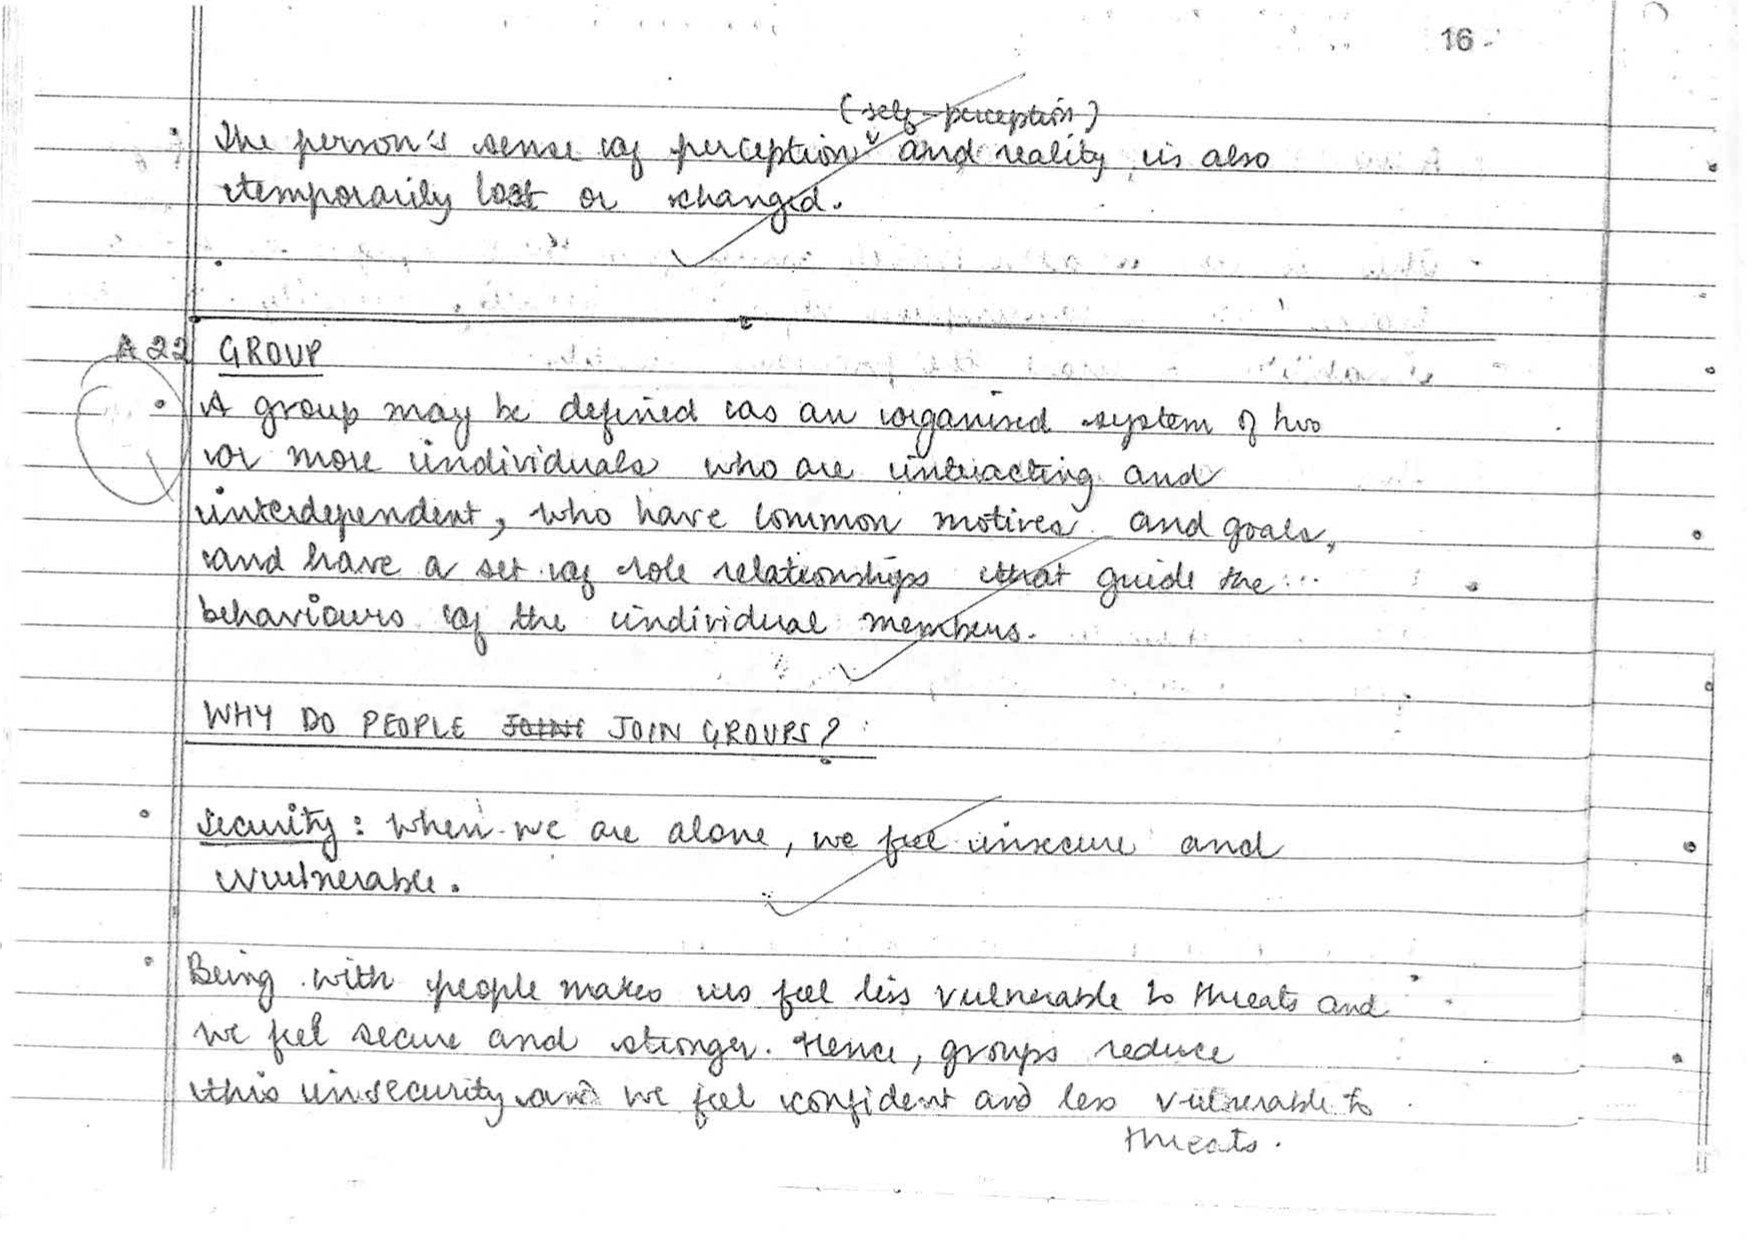 16
(self-perception)
The person's sense of perception and reality is also
temporarily lost or changed.
A22 GROUP
• A group may be defined as an organised system of two
or more individuals who are interacting and
interdependent, who have common motives and goals,
and have a set of role relationships that guide the
behaviours of the individual members.
WHY DO PEOPLE JOINS JOIN GROUPS?
• Security: When we are alone, we feel insecure and
vulnerable.
• Being with people makes us feel less vulnerable to threats and
we feel secure and stronger. Hence, groups reduce
this insecurity and we feel confident and less vulnerable to
threats.